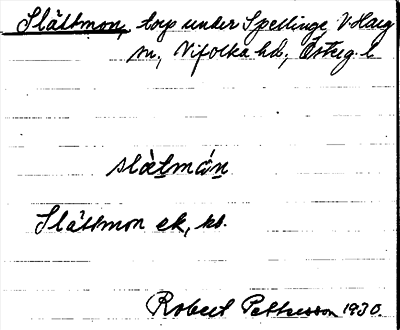 Slättmon, torp under Spellinge, V. Harg
sn, Vifolka hd, Österg. l.
slàtmón
Slättmon ek, kb.
Robert Pettersson 1930.